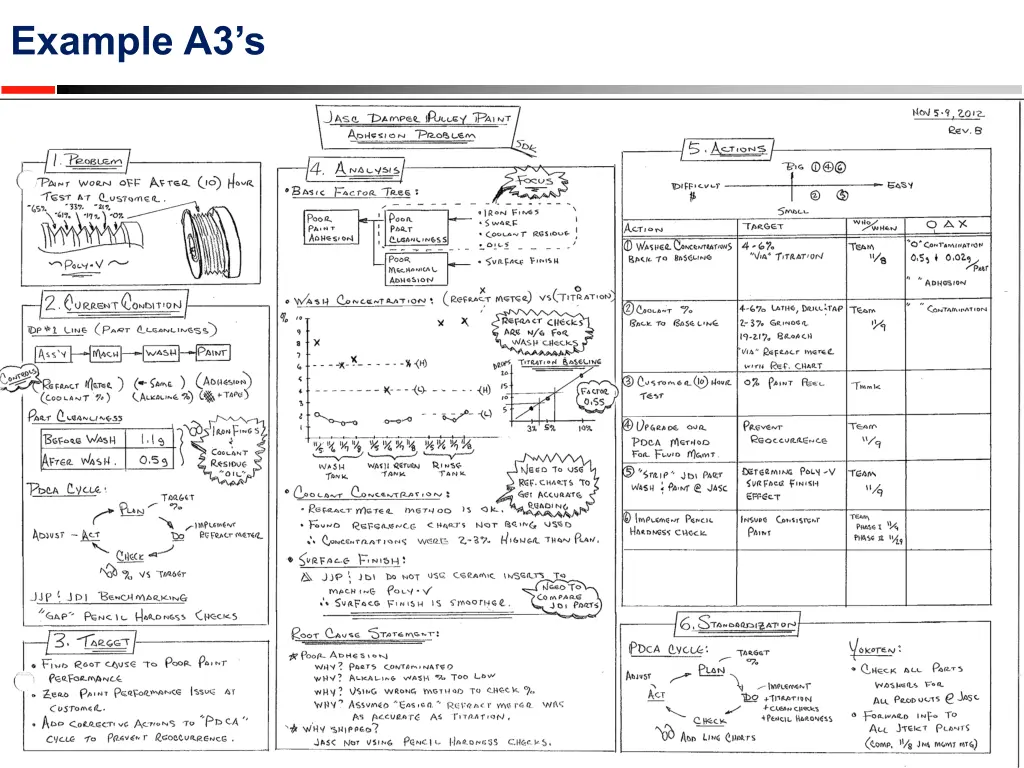 Example A3's
JASC DAMPER PULLEY PAINT
ADHESION PROBLEM
SDK
NOV 5-9, 2012
REV. B
1. PROBLEM
PAINT WORN OFF AFTER (10) HOUR
TEST AT CUSTOMER.
~65% ~61% ~33% ~19% ~21% ~0%
~POLY-V~
2. CURRENT CONDITION
DP#1 LINE (PART CLEANLINESS)
ASS'Y MACH WASH PAINT
CONTROLS
(REFRACT METER) (SAME) (ADHESION)
(COOLANT %) (ALKALINE %) (# + TAPE)
PART CLEANLINESS
BEFORE WASH 1.1g
AFTER WASH. 0.5g
IRON FINES
+
COOLANT
RESIDUE
"OIL"
PDCA CYCLE:
PLAN TARGET %
DO IMPLEMENT REFRACT METER
ADJUST - ACT
CHECK
% VS TARGET
JJP & JDI BENCHMARKING
"GAP" PENCIL HARDNESS CHECKS
3. TARGET
• FIND ROOT CAUSE TO POOR PAINT
PERFORMANCE
• ZERO PAINT PERFORMANCE ISSUE AT
CUSTOMER.
• ADD CORRECTIVE ACTIONS TO "PDCA"
CYCLE TO PREVENT REOCCURRENCE.
4. ANALYSIS
• BASIC FACTOR TREE:
FOCUS
POOR
PAINT
ADHESION
POOR
PART
CLEANLINESS
• IRON FINES
• SWARF
• COOLANT RESIDUE
• OILS
POOR
MECHANICAL
ADHESION
• SURFACE FINISH
• WASH CONCENTRATION: (REFRACT METER) VS (TITRATION)
REFRACT CHECKS
ARE N/G FOR
WASH CHECKS
%
10
9
8
7
6
5
4
3
2
1
(H)
(L) (H)
(L)
11/5 11/6 11/7 11/8 11/5 11/6 11/7 11/8 11/5 11/6 11/7 11/8
WASH TANK
WASH RETURN TANK
RINSE TANK
DROPS TITRATION BASELINE
20
15
10
5
3% 5% 10%
FACTOR
0.55
NEED TO USE
REF. CHARTS TO
GET ACCURATE
READING
• COOLANT CONCENTRATION:
• REFRACT METER METHOD IS OK.
• FOUND REFERENCE CHARTS NOT BEING USED
∴ CONCENTRATIONS WERE 2-3% HIGHER THAN PLAN.
• SURFACE FINISH:
△ JJP & JDI DO NOT USE CERAMIC INSERTS TO
MACHINE POLY-V
∴ SURFACE FINISH IS SMOOTHER.
NEED TO
COMPARE
JDI PARTS
ROOT CAUSE STATEMENT:
* POOR ADHESION
WHY? PARTS CONTAMINATED
WHY? ALKALINE WASH % TOO LOW
WHY? USING WRONG METHOD TO CHECK %
WHY? ASSUMED "EASIER" REFRACT METER WAS
AS ACCURATE AS TITRATION.
* WHY SHIPPED?
JASC NOT USING PENCIL HARDNESS CHECKS.
5. ACTIONS
BIG ① ④ ⑥
DIFFICULT EASY
$ ② ⑤
SMALL
ACTION TARGET WHO/WHEN O △ X
① WASHER CONCENTRATIONS
BACK TO BASELINE
4-6%
"VIA" TITRATION
TEAM
11/8
"O" CONTAMINATION
0.5g → 0.02g/PART
" " ADHESION
② COOLANT %
BACK TO BASELINE
4-6% LATHE, DRILL & TAP
2-3% GRINDER
19-21% BROACH
"VIA" REFRACT METER
WITH REF. CHART
TEAM
11/9
" " CONTAMINATION
③ CUSTOMER (10) HOUR
TEST
0% PAINT PEEL
④ UPGRADE OUR
PDCA METHOD
FOR FLUID MGMT.
PREVENT
REOCCURRENCE
TEAM
11/9
⑤ "STRIP" JDI PART
WASH & PAINT @ JASC
DETERMINE POLY-V
SURFACE FINISH
EFFECT
TEAM
11/9
⑥ IMPLEMENT PENCIL
HARDNESS CHECK
INSURE CONSISTENT
PAINT
TEAM
PHASE I 11/9
PHASE II 11/29
6. STANDARDIZATION
PDCA CYCLE:
TARGET %
PLAN
ADJUST
ACT
DO
- IMPLEMENT
+ TITRATION
+ CLEAN CHECKS
+ PENCIL HARDNESS
CHECK
ADD LINE CHARTS
YOKOTEN:
• CHECK ALL PARTS
WASHERS FOR
ALL PRODUCTS @ JASC
• FORWARD INFO TO
ALL JTEKT PLANTS
(COMP. 11/8 JNA MGMT MTG)